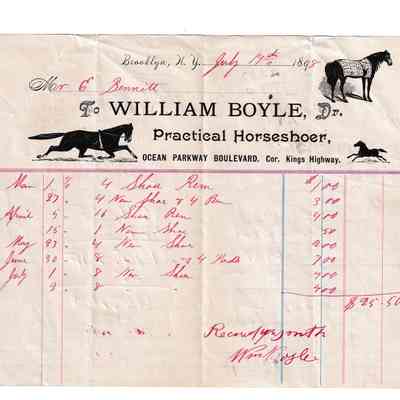 Brooklyn, N.Y. July 1898
Mr E Bennett
To WILLIAM BOYLE, Dr.
Practical Horseshoer,
OCEAN PARKWAY BOULEVARD. Cor. Kings Highway.
Mar 1 4 Shoe Rem $1 00
4 New Shoe & 4 Rem 3 00
April 5 16 Shoe Rem 4 00
15 1 New Shoe 50
May 4 New Shoe 2 00
June 30 8 " " & 4 Pads 7 00
July 1 8 New Shoe 4 00
9 8 " 4 00
$25.50
Wm Boyle